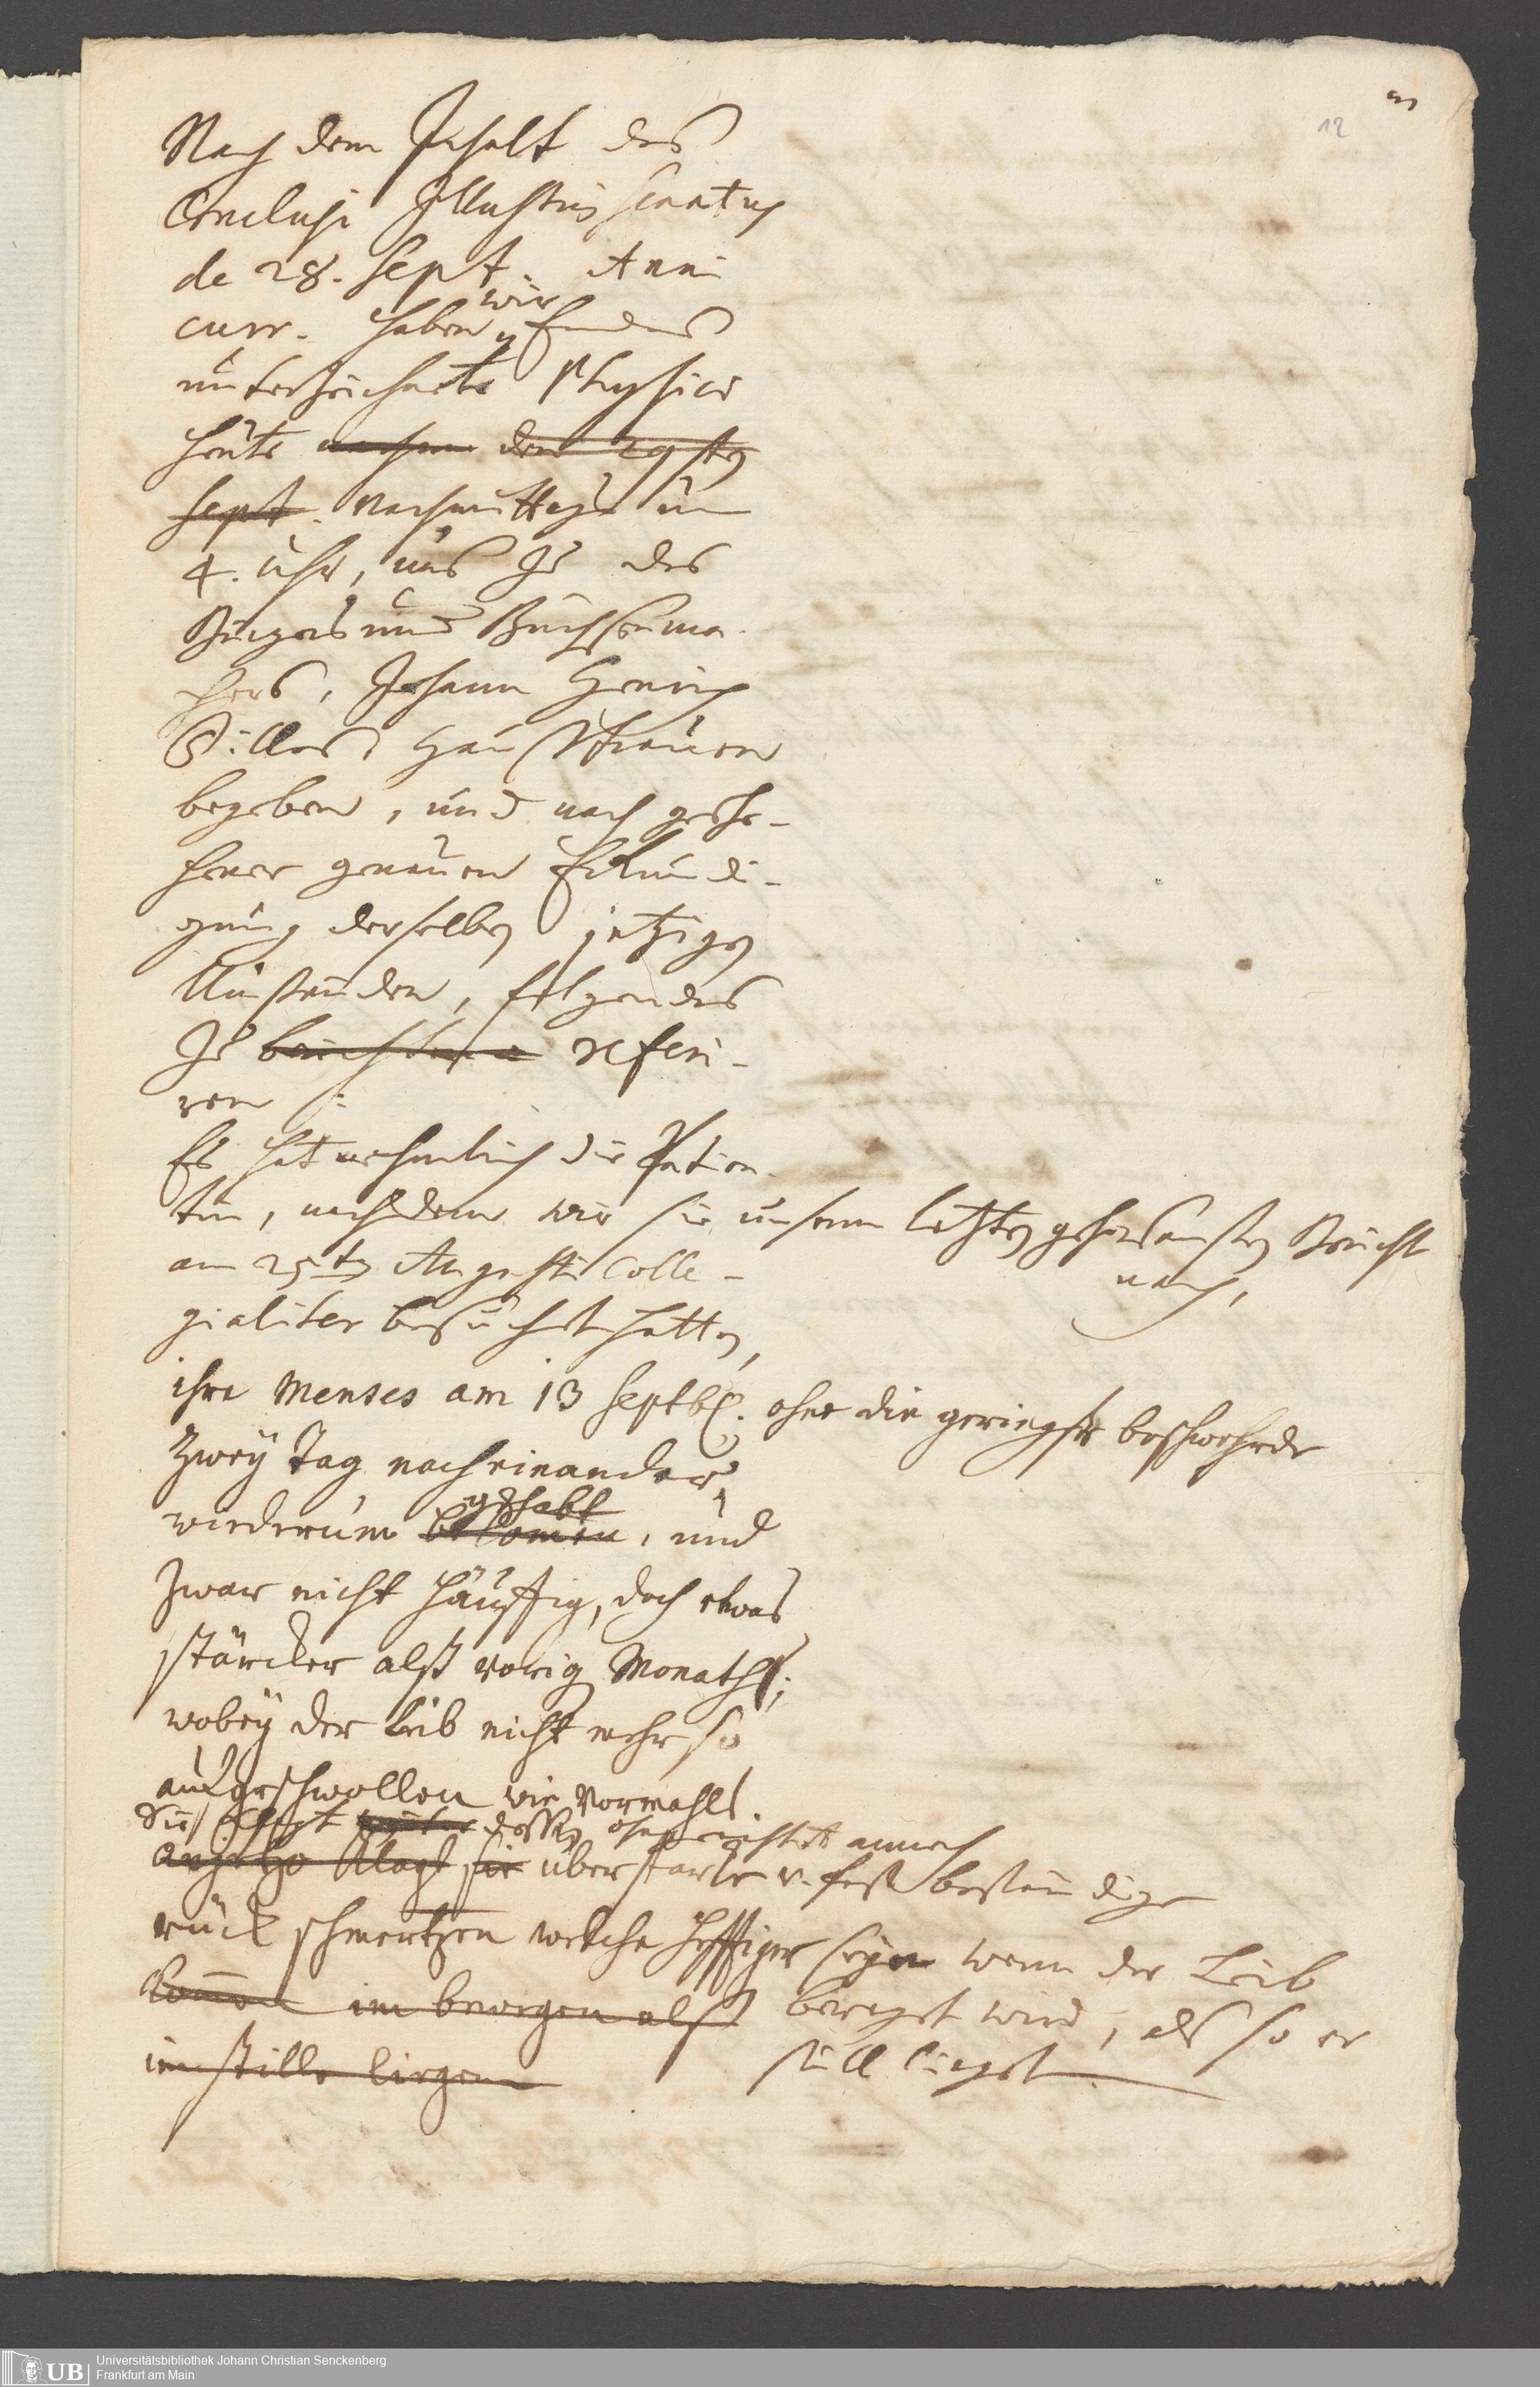 m
12
Nach dem Inhalt des
Conclusi Illustris Senatus
de 28. Sept. Anni
wir
curr. haben Endes
unterzeichnete Physici
heute den 29sten
Sept. Nachmittags um
4. Uhr, uns zu des
Burgers und Büchsenma-
chers, Johann Henrich
Hauß Frauen
begeben, und nach gesche-
hener genauen Erkundi-
gung derselben jetzigen
Umständen, folgendes
zu berichten refferi-
ren:
Es hat nehmlich die Patien-
tin, nachdem wir sie unserm letzten gehorsamsten Bericht
nach,
am 25ten Augusti Colle-
gialiter besucht hatten,
ihre Menses am 13 Septbr. ohne die geringste beschwehrde
zwey Tag nacheinander,
gehabt
wiederum bekommen, und
zwar nicht häuffig, doch etwas
stärcker alß vorig Monath;
wobey der Leib nicht mehr so
aufgeschwollen wie vormahls.
Sie klagt dessen ohngeachtet annoch
anjetzo klagt sie über starke u. fast beständige
rück schmertzen welche hefftiger seyn wenn der Leib
im bewegen alß beweget wird, als so er
im stille liegen still lieget
UB
Universitätsbibliothek Johann Christian Senckenberg
Frankfurt am Main